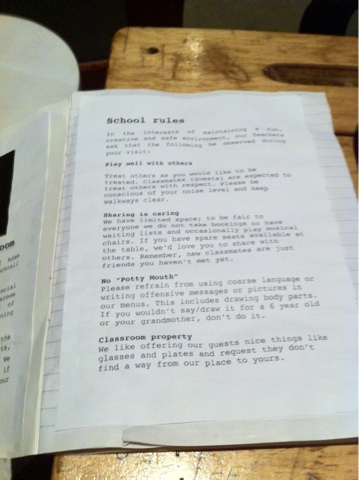 School rules
In the interests of maintaining a fun,
creative and safe environment, our Teachers
ask that the following be observed during
your visit:
Play well with others
Treat others as you would like to be
treated. Classmates (guests) are expected to
treat others with respect. Please be
conscious of your noise level and keep
walkways clear.
Sharing is caring
We have limited space; to be fair to
everyone we do not take bookings or have
waiting lists and occasionally play musical
chairs. If you have spare seats available at
the table, we'd love you to share with
others. Remember, new classmates are just
friends you haven't met yet.
No "Potty Mouth"
Please refrain from using coarse language or
writing offensive messages or pictures in
our menus. This includes drawing body parts.
If you wouldn't say/draw it for a 6 year old
or your grandmother, don't do it.
Classroom property
We like offering our guests nice things like
glasses and plates and request they don't
find a way from our place to yours.